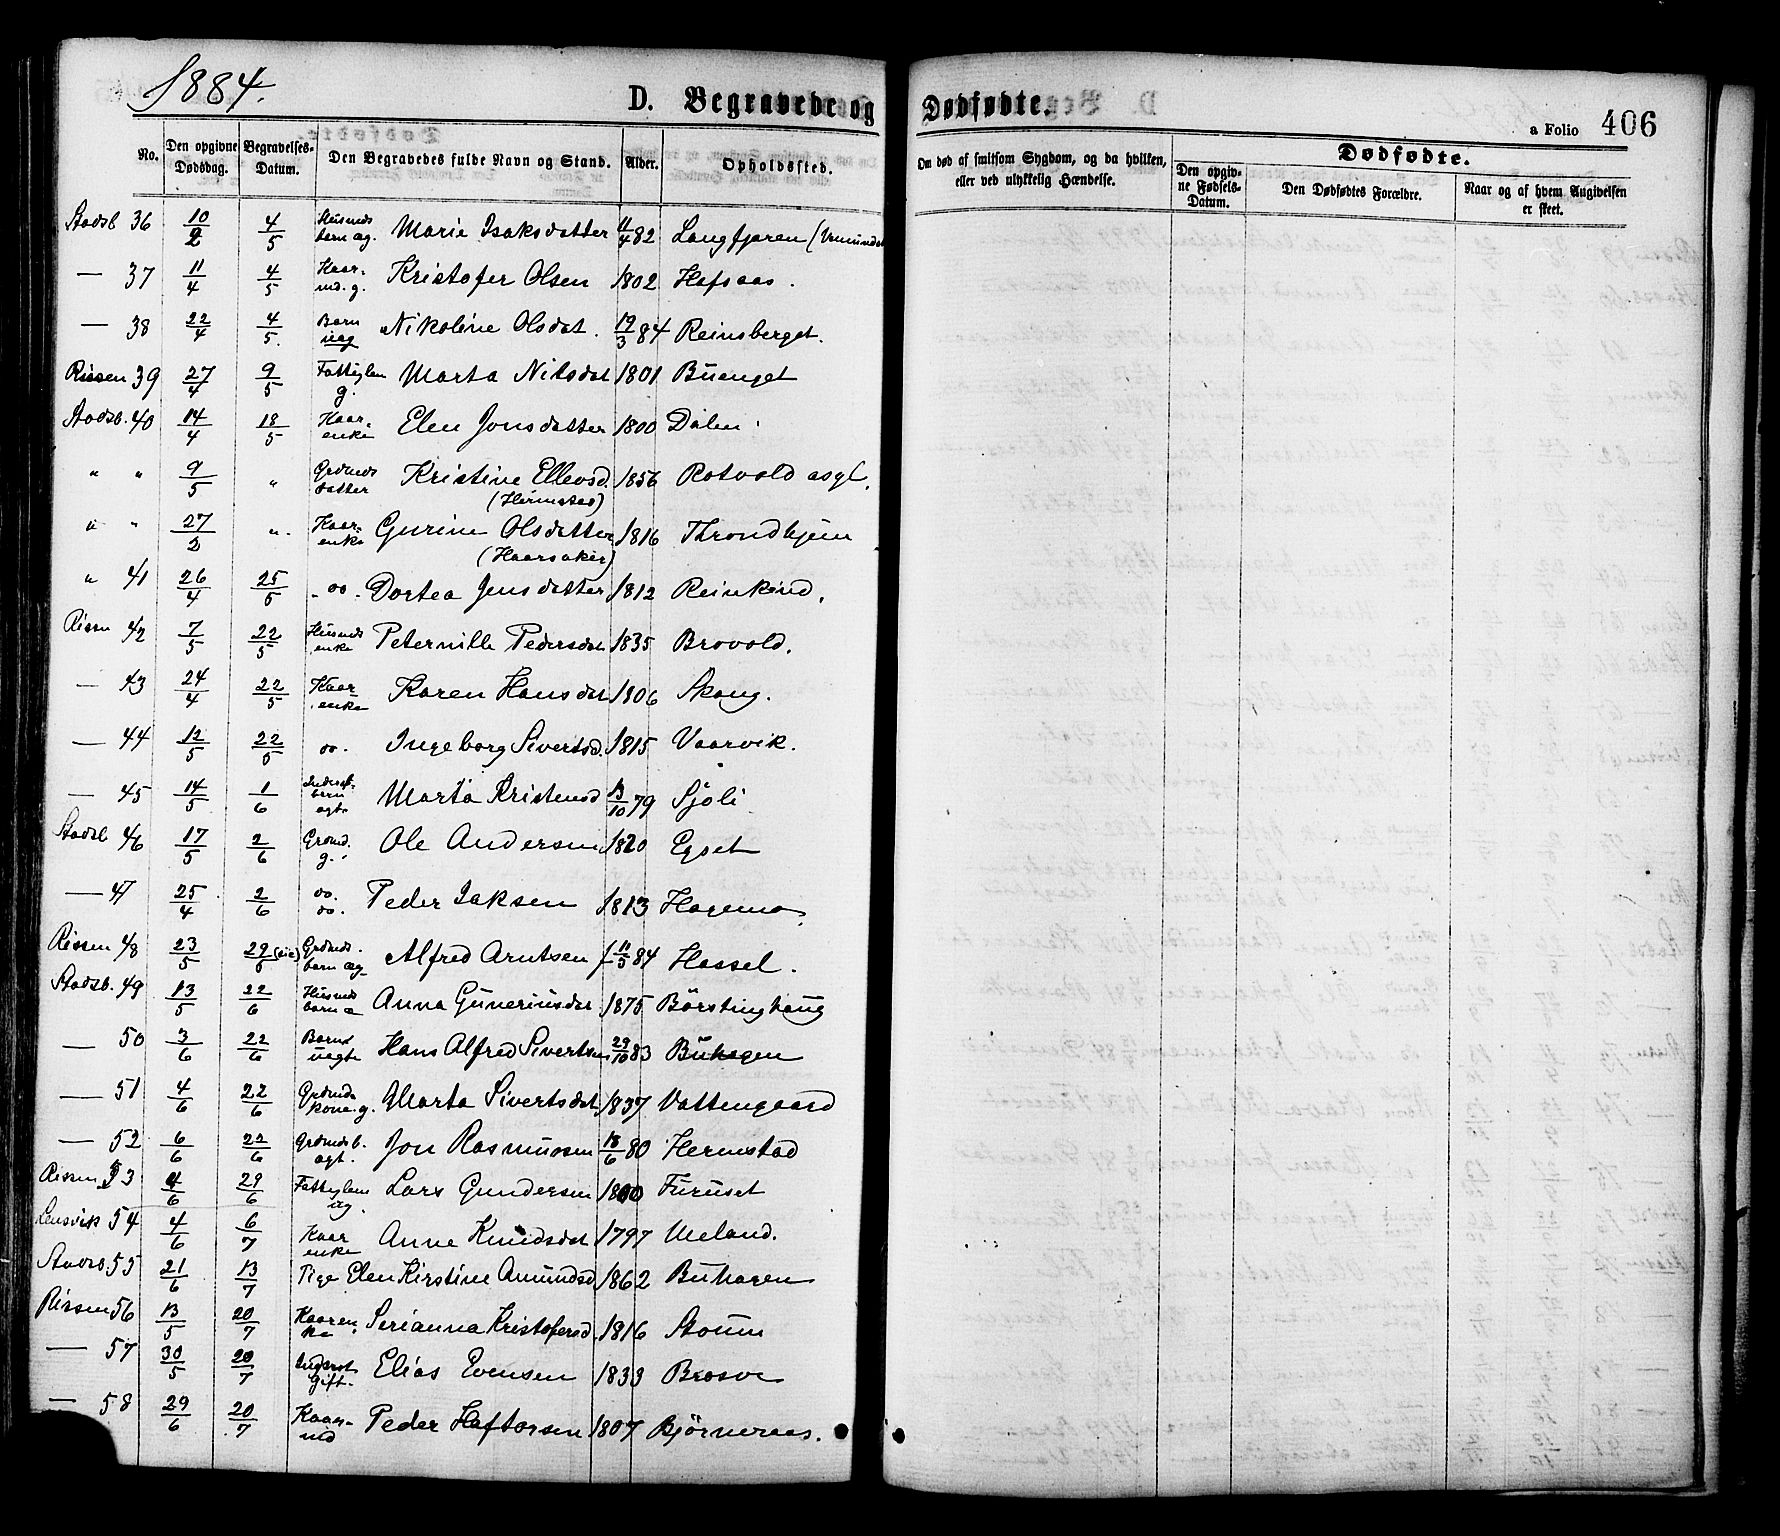 1884.
D. Begravede og Dødfødte.
a Folio 406
No. Den opgivne Dødsdag. Begravelses-Datum. Den Begravedes fulde Navn og Stand. Alder. Opholdssted.
Om død af smitsom Sygdom, og da hvilken, eller ved ulykkelig Hændelse.
Dødfødte.
Den opgivne Fødsels-Datum. Den Dødfødtes Forældre. Naar og af hvem Angivelsen er skeet.
Stadsb 36 10/2 4/5 Husmds barn æg. Marie Isaksdatter 11/4 82 Langfjæren
— 37 11/4 4/5 Kaarmd. g. Kristofer Olsen 1802 Hofsaas.
— 38 22/4 4/5. Barn uæg Nikoline Olsdat. 19/3 84 Reinsberget.
Rissen 39 27/4 9/5 Fattiglem g. Marta Nilsdat 1801 Buenget
Stadsb. 40 14/4 18/5 Kaarenke Elen Jonsdatter 1800 Dalen
" " 9/5 " Grdmds datter Kristine Ellevsd. (Hermstad) 1856 Rotvold asyl.
" " 27/2 " Kaarenke Gurine Olsdatter (Haarsaker) 1816 Throndhjem
" 41 26/4 25/5 " do. Dortea Jensdatter 1812 Reinkind.
Rissen 42 7/5 22/5 Husmds enke Peternille Pedersdat 1835 Brovold.
— 43 24/4 22/5 Kaarenke Karen Hansdat 1806 Skaug.
— 44 12/5 22/5 do. Ingeborg Sivertsd. 1815 Vaarvik.
— 45 14/5 1/6 Inderst. barn ægte Marta Kristensd 13/10 79 Sjøli
Stadsb 46 17/5 2/6 Grdmd. g. Ole Andersen 1820 Egset
— 47 25/4 2/6 do. do. Peder Isaksen 1813 Hagemo
Rissen 48 23/5 29/5 (sic) Grdmds. barn æg Alfred Arntsen 11/5 84 Hassel.
Stadsb. 49 13/5 22/6 Husmds barn æ Anna Guneriusdat. 1875 Børstinghaug
— 50 3/6 22/6 Barn uægte Hans Alfred Sivertsen 29/10 83 Buhagen
— 51 4/6 22/6 Grdmds kone. g. Marta Sivertsdat. 1837 Vattengaard
— 52 6/6 22/6 Grdmds b. ægt. Jon Rasmussen 18/6 80 Hermstad
Rissen 53 4/6 29/6 Fattiglem ug. Lars Gundersen 1800 Furuset
Lensvik 54 4/6 6/7 Kaarenke Anne Knudsdat 1797 Meland.
Stadsb. 55 21/6 13/7 Pige Elen Kirstine Amundsd 1862 Buhagen
Rissen 56 13/5 20/7 Kaarenke. Serianna Kristofersd. 1816 Stoum
— 57 30/5 20/7 Inderst Gift. Elias Evensen 1833 Brosve
— 58 29/6 20/7 Kaarmd Peder Haftorsen 1807 Bjørneraas.